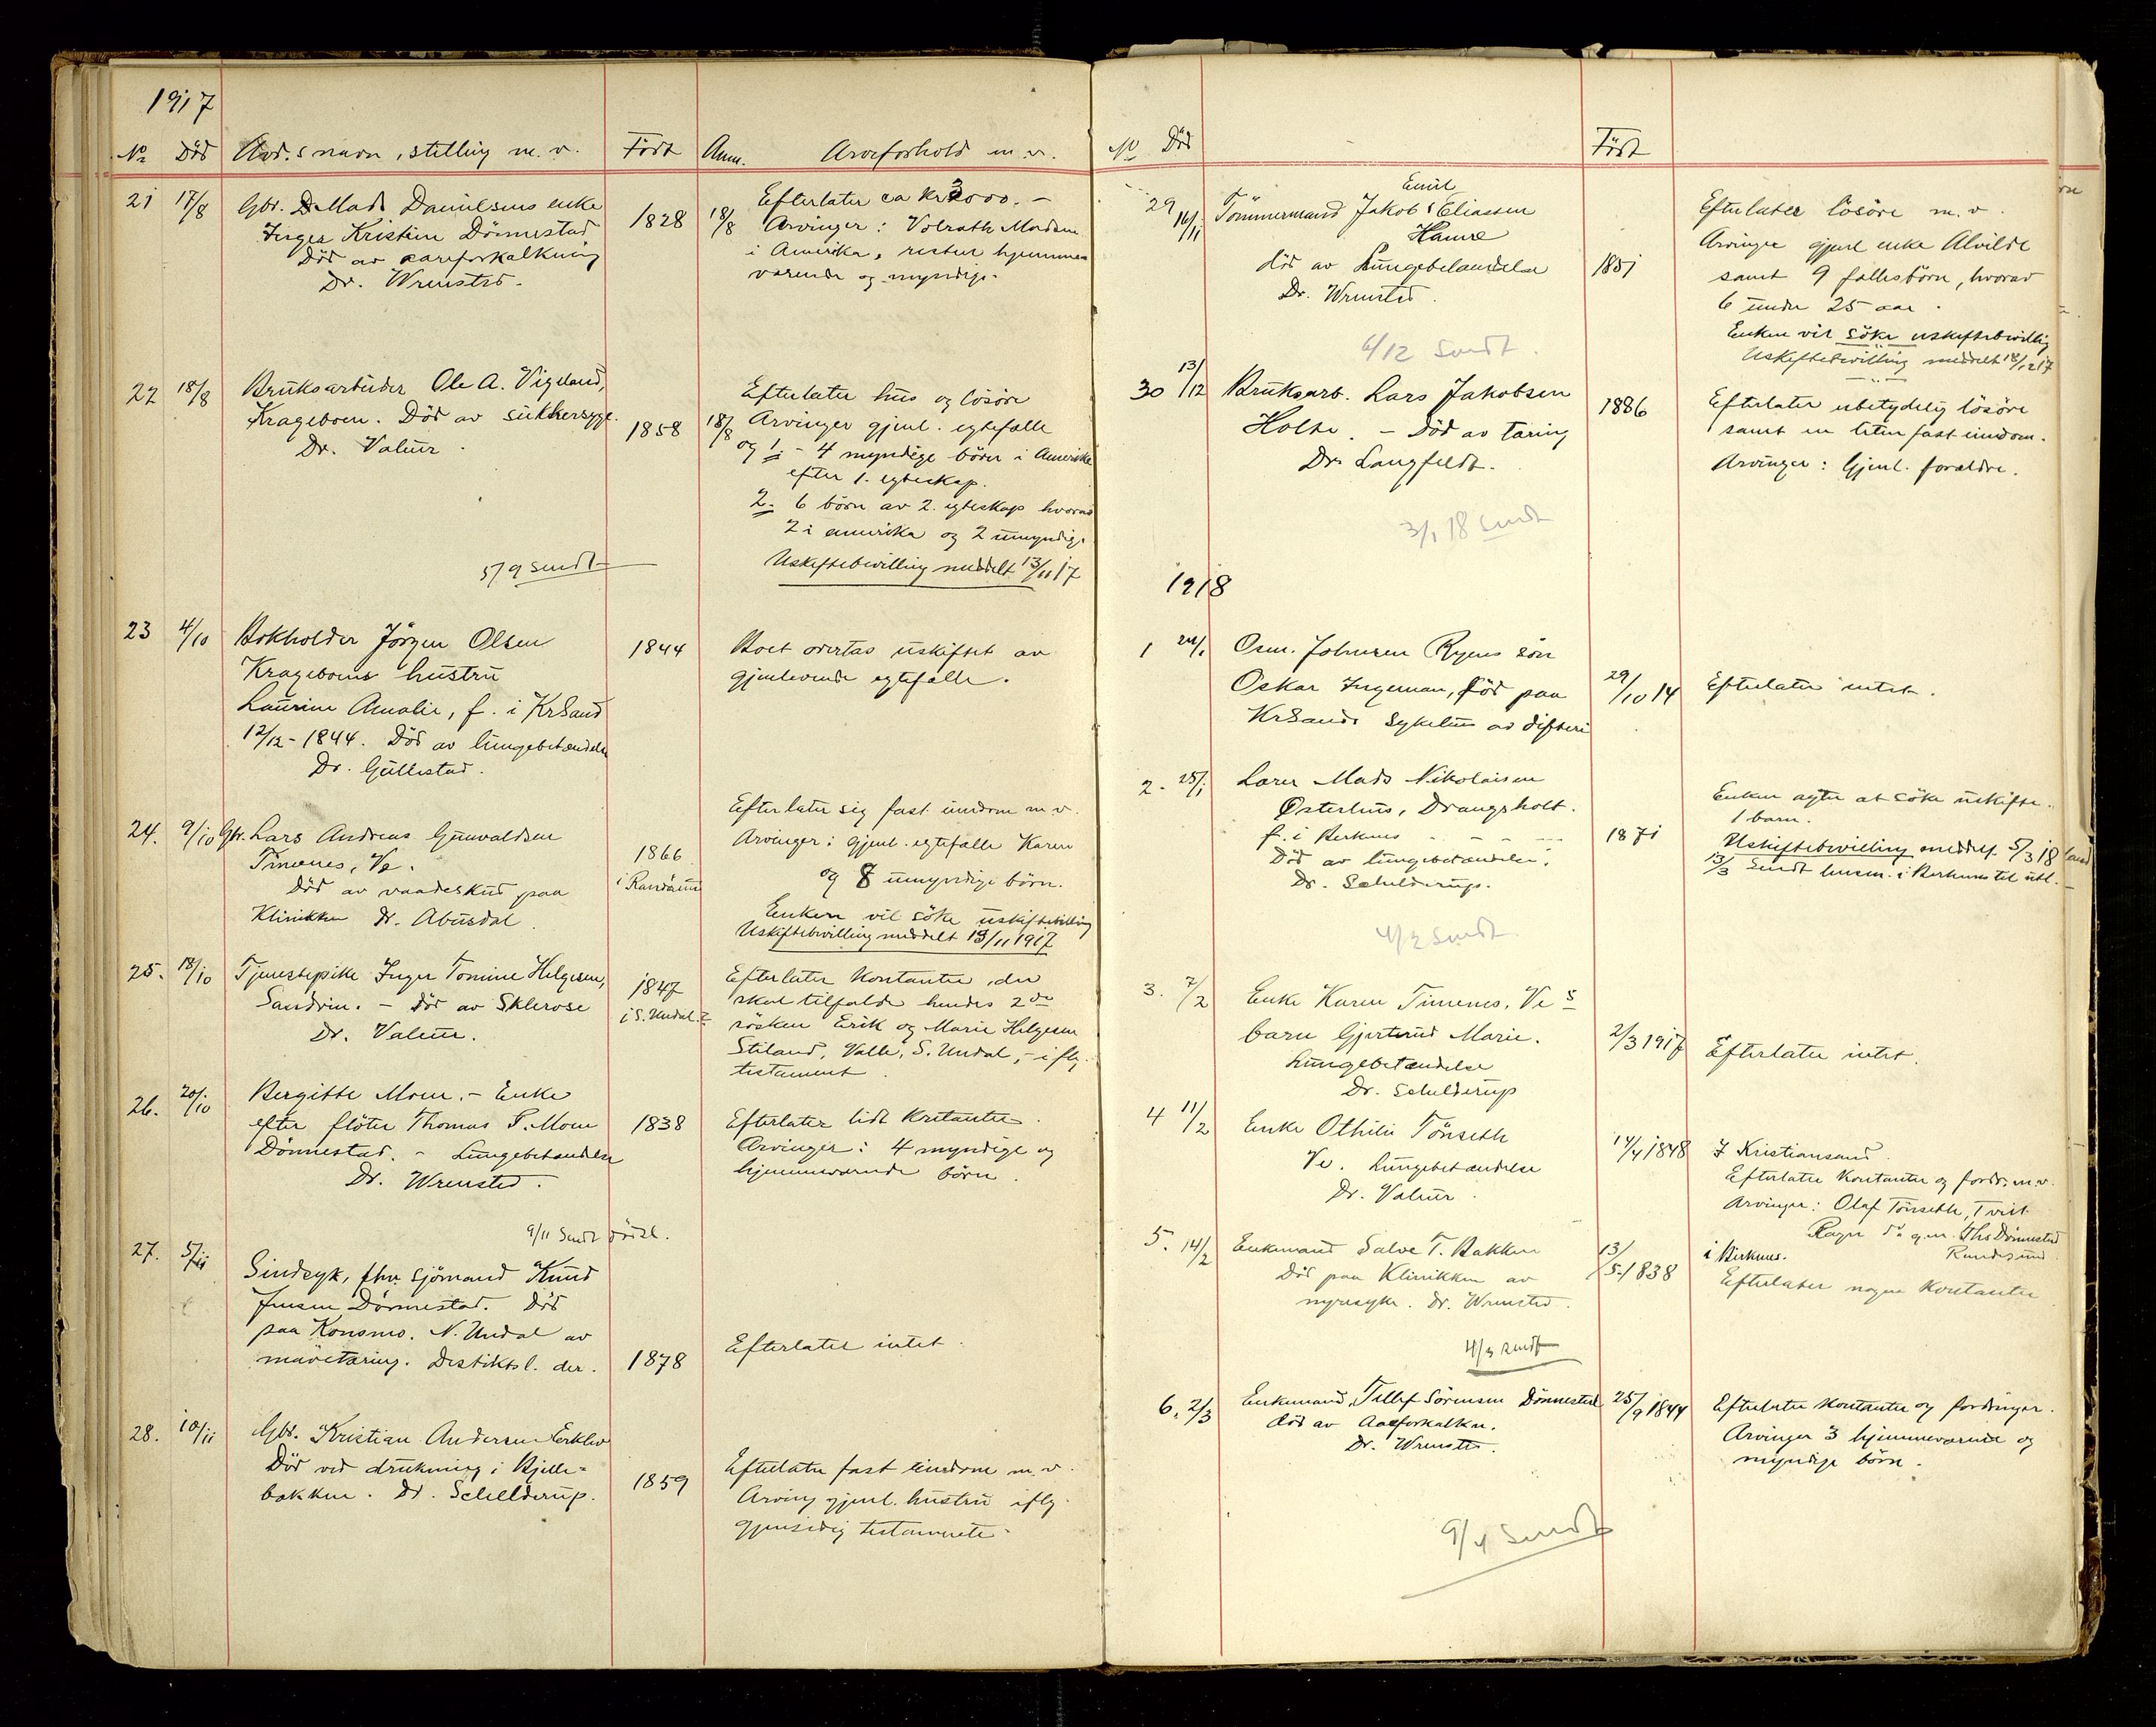 1917
No Död Avd.s navn, stilling m.v. Född Anm. Arveforhold m.v.
21 17/8 Gbr. Mads Danielsens enke 1828 18/8 Efterlater ca kr 3000.-
Inger Kristine Dönnestad Arvinger: Volrath Madsen
Död av aareforkalkning i Amerika, resten hjemme-
Dr. Wrensted. værende og myndige.
22 18/8 Bruksarbeider Ole A. Vigeland, Efterlater hus og lösöre
Krageboen. Död av sukkersyge. 1858 18/8 Arvinger gjenl. egtefælle
Dr. Valeur. og 1. - 4 myndige börn i Amerika
efter 1. egteskap.
2. 6 börn av 2. egteskap hvorav
2 i amerika og 2 umyndige
5/9 sendt Uskiftebevilling meddelt 13/11 17
23 4/10 Bokholder Jörgen Olsen 1844 Boet overtas uskiftet av
Krageboens hustru gjenlevende egtefælle.
Laurine Amalie, f. i KrSand
12/12-1844. Död av lungebetændelse
Dr. Gullestad.
24. 9/10 Gbr. Lars Andreas Gunvaldsen 1866 i Randøsund Efterlater sig fast eiendom m.v.
Timenes, Ve. Arvinger: gjenl. egtefælle Karen
Död av vaadeskud paa og 8 umyndige börn.
Klinikken Dr. Abusdal. Enken vil söke uskiftebevilling
Uskiftebevilling meddelt 13/11 1917
25. 18/10 Tjenestepike Inger Tomine Helgesen, 1847 i S. Undal. Efterlater Kontanter, der
Sandvin. - död av Sklerose skal tilfalde hendes 2de
Dr. Valeur. sösken Erik og Marie Helgesen
Stiland, Valle, S. Undal, - iflg.
testament.
26. 20/10 Bergitte Moen. - Enke 1838 Efterlater lidt kontanter.
efter flöter Thomas P. Moen Arvinger: 4 myndige og
Dönnestad. - Lungebetændelse hjemmeværende börn.
Dr. Wrensted.
9/11 sendt
27. 5/11 Sindsyk, fhv. sjömand Knud
Jensen Dönnestad. Död
paa Konsmo. N. Undal av
mavetæring. Distiktsl. der. 1878 Efterlater intet.
28. 10/11 Gbr. Kristian Andersen Erklev 1859 Efterlater fast eiendom m.v.
Död ved drukning i Kjelle- Arving gjenl. hustru iflg.
bakken. Dr. Schelderup. gjensidig testamente.
No Död Född
29 16/11 Tömmermand Jakob Emil Eliassen Efterlater lösöre m.v.
Hamre Arvinger gjenl enke Alvilde
död av Lungebetændelse 1851 samt 9 fællesbörn, hvorav
Dr. Wrensted. 6 under 25 aar.
Enken vil söke uskiftebevillig
6/12 sendt. Uskiftebevilling meddelt 18/12 17
30 13/12 Bruksarb. Lars Jakobsen 1886 Efterlater ubetydelig lösöre
Holte. - Död av tæring samt en liten fast eiendom.
Dr. Langfeldt. Arvinger: Gjenl. forældre.
3/1 18 sendt
1918
1 24/1 Osm. Johnsen Ryens sön
Oskar Ingeman, död paa 29/10 14 Efterlater intet.
KrSands sykehus av difteri
2. 25/1 Lærer Mads Nikolaisen
Østerhus, Drangsholt. Enken agter at söke uskifte.
f. i Birkenes 1871 1 barn.
Död av lungebetændelse. Uskiftebevilling meddelt 5/3 18
Dr. Schelderup. 13/3 sendt lensm. i Birkenes til utl.
4/2 sendt.
3. 7/2 Enke Karen Timenes, Ve s
barn Gjertrud Marie. 2/3 1917 Efterlater intet.
Lungebetændelse
Dr. Schelderup
4 11/2 Enke Othilie Tönseth 14/4 1848 I Kristiansand.
Ve. Lungebetændelse Efterlater kontanter og fordr. m.v.
Dr. Valeur. Arvinger: Olaf Tönseth, Tveit
Ragn. da g.m. Ths Dönnestad
Randesund
5. 14/2 Enkemand Salve T. Bakken 13/5 1838 i Birkenes.
Död paa Klinikken av Efterlater nogen kontanter
nyresyke. Dr. Wrensted.
4/3 sendt
6. 2/3 Enkemand, Tellef Sörensen Dönnestad 25/9 1844 Efterlater kontanter og fordringer.
död av Aareforkalkn. Arvinger 3 hjemmeværende og
Dr. Wrensted. myndige börn.
9/4 sendt